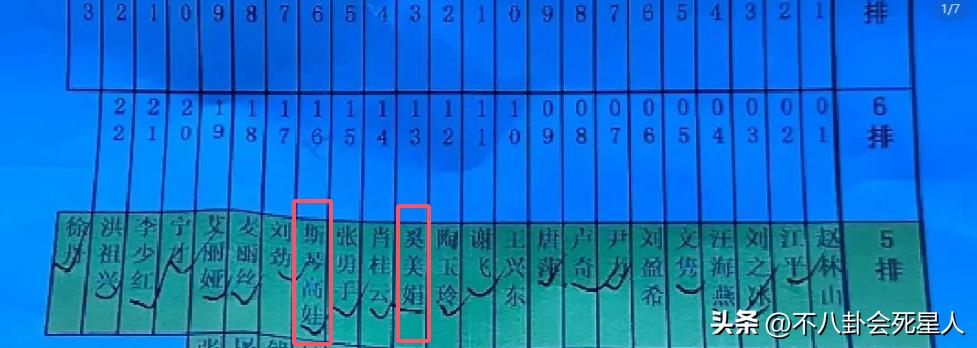 3 2 1 0 9 8 7 6 5 4 3 2 1 0 9 8 7 6 5 4 3 2 1 排
1/7
22 21 20 19 18 17 16 15 14 13 12 11 10 09 08 07 06 05 04 03 02 01 6排
徐丹 洪祖兴 李少红 宁才 艾丽娅 麦丽丝 刘劲 斯琴高娃 张勇手 肖桂云 奚美娟 陶玉玲 谢飞 王兴东 唐莎 卢奇 尹力 刘盈希 文隽 汪海燕 刘之冰 江平 赵林山 5排
头条 @不八卦会死星人